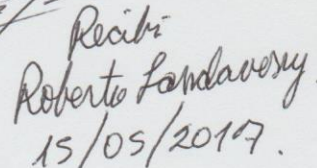 Recibi
Roberto Landaverry
15/05/2017.